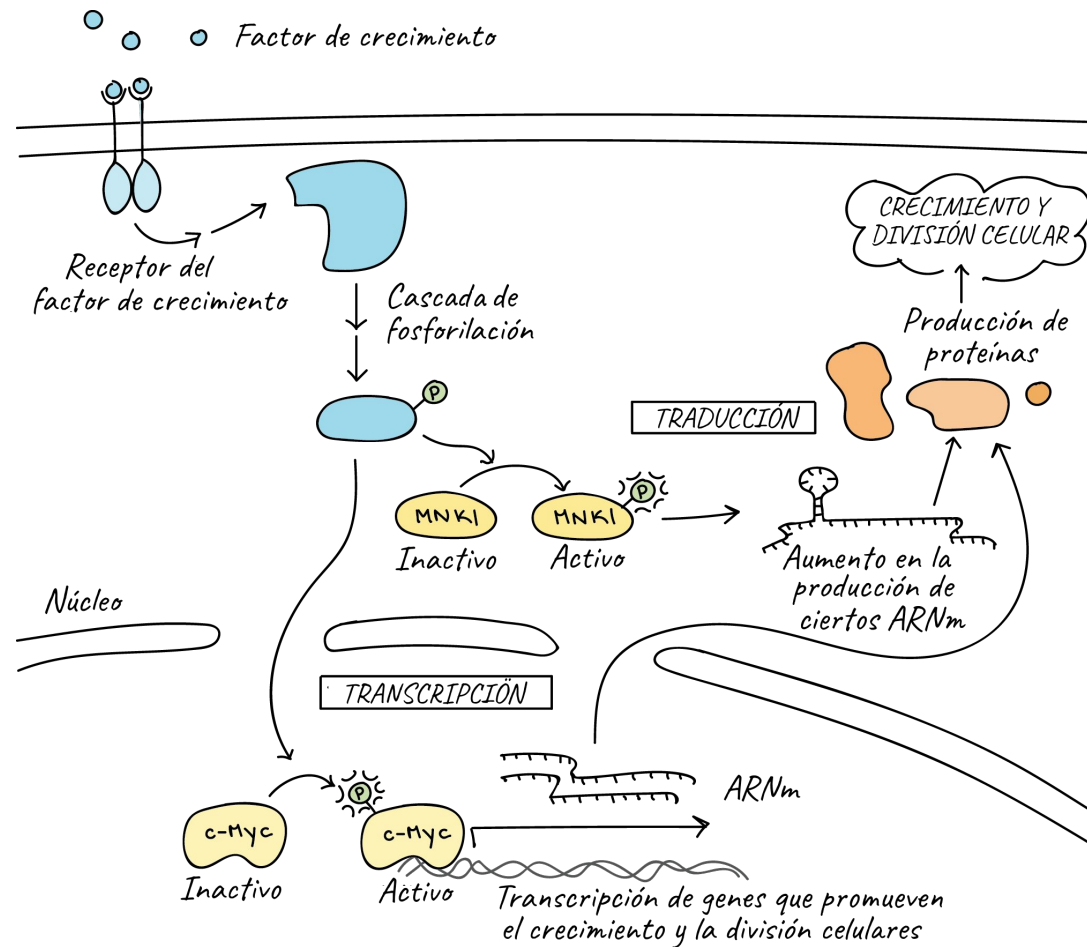 Factor de crecimiento
Receptor del
factor de crecimiento
Cascada de
fosforilación
CRECIMIENTO Y
DIVISIÓN CELULAR
Producción de
proteínas
P
TRADUCCIÓN
MNK1
Inactivo
MNK1
P
Activo
Aumento en la
producción de
ciertos ARNm
Núcleo
TRANSCRIPCIÖN
ARNm
c-Myc
Inactivo
P
c-Myc
Activo
Transcripción de genes que promueven
el crecimiento y la división celulares